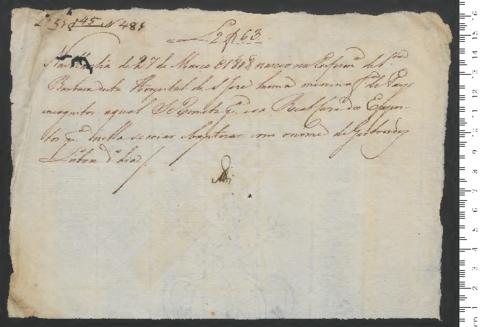 L 5 145 N 481
L 2 R 63
dia de 27 de Março de 1818 nasceo na Enferm.ª de S.ta
Barbara deste Hospital de S. Jozé huma menina f.ª de Pays
incognitos aqual Se Remete p.ª a Real Caza dos Expos
tos p.ª nella se criar baptizar com o nome de Gertrudes
Lisboa d.º dia